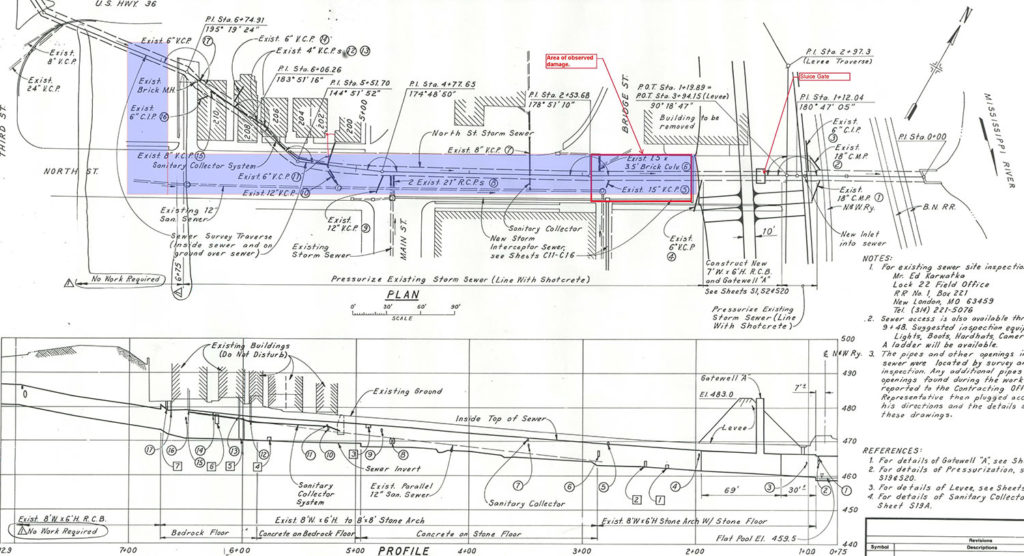 U.S. HWY. 36
P.I. Sta. 6+74.91
195° 19' 24"
Exist. 6" V.C.P.
17
Exist. 6" V.C.P. 14
Exist. 4" V.C.P.s 12 13
Exist.
8" V.C.P.
Exist.
24" V.C.P.
Exist.
Brick M.H.
Exist.
6" C.I.P. 16
P.I. Sta. 6+06.26
183° 51' 16"
P.I. Sta. 5+51.70
144° 51' 52"
5+00
P.I. Sta. 4+77.65
174° 48' 50"
P.I. Sta. 2+53.68
178° 51' 10"
Area of observed
damage.
BRIDGE ST.
P.O.T. Sta. 1+19.89 =
P.O.T. Sta. 3+94.15 (Levee)
90° 18' 47"
Building to be
removed
P.I. Sta. 2+97.3
(Levee Traverse)
Sluice Gate
P.I. Sta. 1+12.04
180° 47' 05"
N
MISSISSIPPI RIVER
THIRD ST.
NORTH ST.
210
208
206
204
202
200
North St. Storm Sewer
Exist. 8" V.C.P. 7
Exist. 8" V.C.P. 15
Sanitary Collector System
Exist. 6" V.C.P. 11
Exist. 12" V.C.P. 10
2 Exist 21" R.C.P.s 8
Exist 1.5 x
3.5' Brick Culv. 6
Exist. 15" V.C.P. 5
Exist.
6" C.I.P.
3
Exist.
18" C.M.P.
2
Exist.
18" C.M.P. 1
N&W.Ry.
P.I. Sta 0+00
B.N. RR.
Existing 12"
San. Sewer
Sewer Survey Traverse
(Inside sewer and on
ground over sewer)
Existing
Storm Sewer
Exist.
12" V.C.P. 9
MAIN ST.
Sanitary Collector
New Storm
Interceptor Sewer,
see Sheets C11-C16
Exist.
6" V.C.P.
4
10'
New Inlet
into sewer
Construct New
7' W. x 6' H. R.C.B.
and Gatewell "A"
See Sheets S1, S2 & S20
No Work Required
6+75
Pressurize Existing Storm Sewer (Line With Shotcrete)
Pressurize Existing
Storm Sewer (Line
With Shotcrete)
PLAN
30' 0 30' 60' 90'
SCALE
NOTES:
1. For existing sewer site inspectio
Mr. Ed Karwatka
Lock 22 Field Office
R R No. 1, Box 221
New London, MO 63459
Tel. (314) 221-5076
2. Sewer access is also available thr
9+48. Suggested inspection equip
Lights, Boots, Hardhats, Camer
A ladder will be available.
3. The pipes and other openings in
sewer were located by survey an
inspection. Any additional pipes
openings found during the work
reported to the Contracting Offi
Representative then plugged acc
his directions and the details o
these drawings.
REFERENCES:
1. For details of Gatewell "A", see Sh
2. For details of Pressurization, s
S19 & S20.
3. For details of Levee, see Sheets
4. For details of Sanitary Collecto
Sheet S19A.
Revisions
Symbol
Descriptions
Existing Buildings
(Do Not Disturb)
Existing Ground
Inside Top of Sewer
Gatewell "A"
El. 483.0
Levee
℄ N&W Ry.
7'±
500
490
480
470
460
450
440
17 16 7 14 15 6 5 13 4 12 11 10 3 9 8
7 6 5 2 1 4 3 2 1
Sewer Invert
Sanitary
Collector
System
Exist. Parallel
12" San. Sewer
Sanitary Collector
69'
30'±
Exist. 8'W. x 6'H. R.C.B.
No Work Required
Exist. 8'W. x 6'H. to 8'x8' Stone Arch
Bedrock Floor
Concrete on Bedrock Floor
Concrete on Stone Floor
Exist. 8'W x 6'H Stone Arch W/ Stone Floor
Flat Pool El. 459.5
7+00
6+00
5+00
4+00
3+00
2+00
1+00
0+75
PROFILE